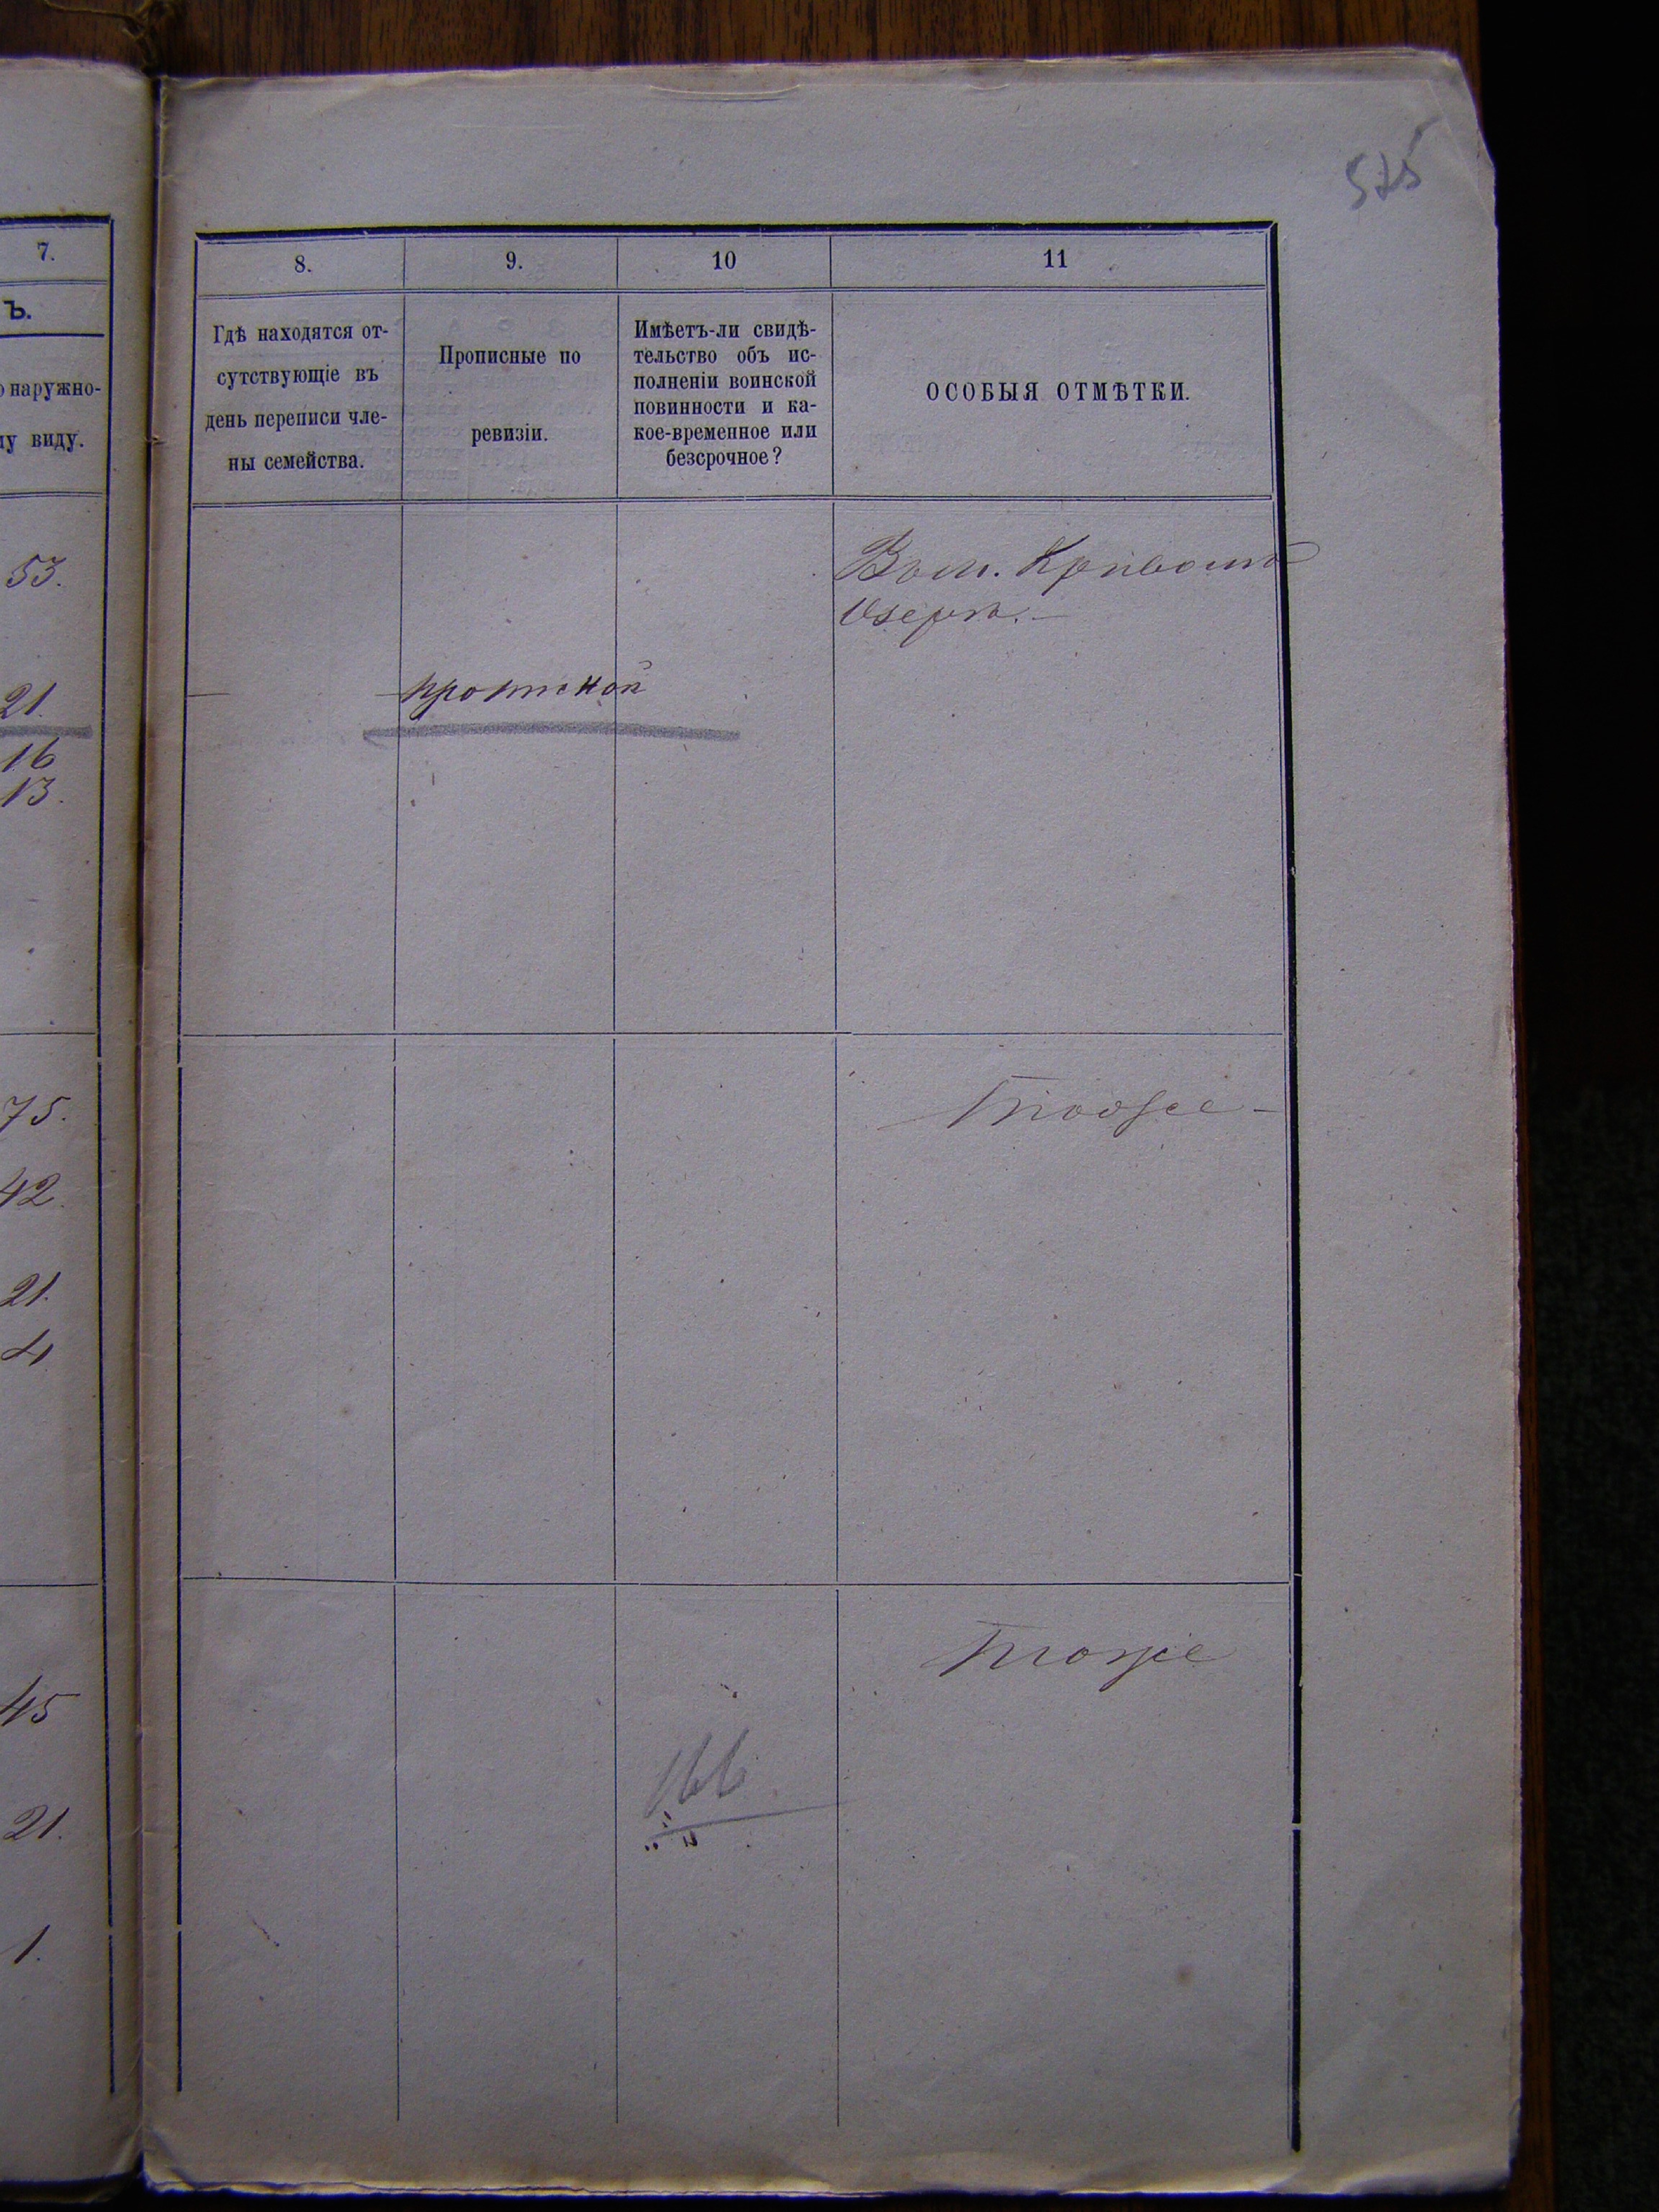 575
7.
ъ.
о наружно-
му виду.
53.
21.
16
13.
75.
42.
21.
4
45
21.
1.
8.
9.
10
11
Гдѣ находятся от-
сутствующіе въ
день переписи чле-
ны семейства.
Прописные по
ревизіи.
Имѣетъ-ли свидѣ-
тельство объ ис-
полненіи воинской
повинности и ка-
кое-временное или
безсрочное?
ОСОБЫЯ ОТМѢТКИ.
Кривомъ
Озерѣ.—
прописной
Тоже
Тоже
166